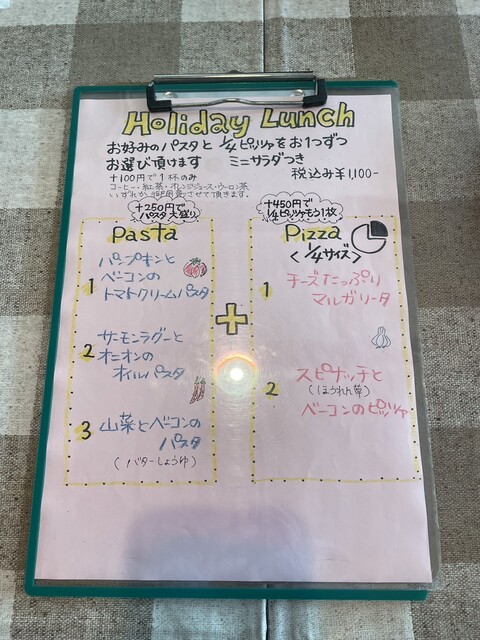 Holiday Lunch
お好みのパスタと 1/4ピッツァをお1つずつ
お選び頂けます ミニサラダつき
税込み¥1,100-
+100円で1杯のみ
コーヒー・紅茶・オレンジジュース・ウーロン茶
いずれか ご用意させて頂きます。
+250円で
パスタ大盛り
Pasta
1 パンプキンと
ベーコンの
トマトクリームパスタ
2 サーモンラグーと
オニオンの
オイルパスタ
3 山菜とベーコンの
パスタ
(バターしょうゆ)
+
+450円で
1/4ピッツァもう1枚
Pizza
<1/4サイズ>
1 チーズたっぷり
マルガリータ
2 スピナッチと
(ほうれん草)
ベーコンのピッツァ